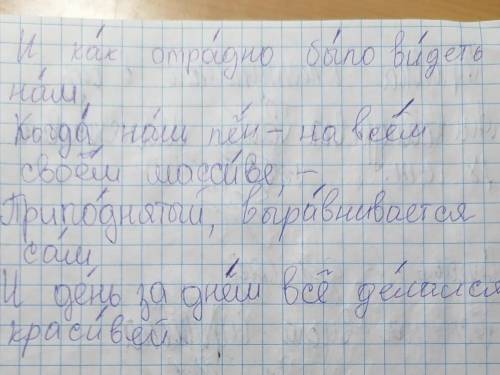 И ка́к отра́дно бы́ло ви́деть
на́м,
Когда́ на́ш лён – на всём
своём масси́ве, –
Припо́днятый, выра́внивается
са́м
И де́нь за днём всё де́лался
краси́вей